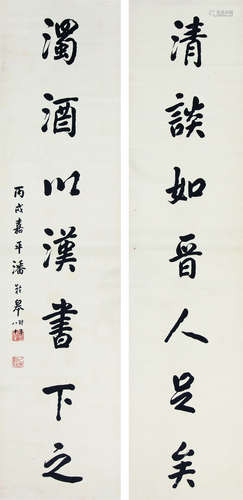 清談如晉人足矣
濁酒以漢書下之
丙戌嘉平潘齡皋
時年八十